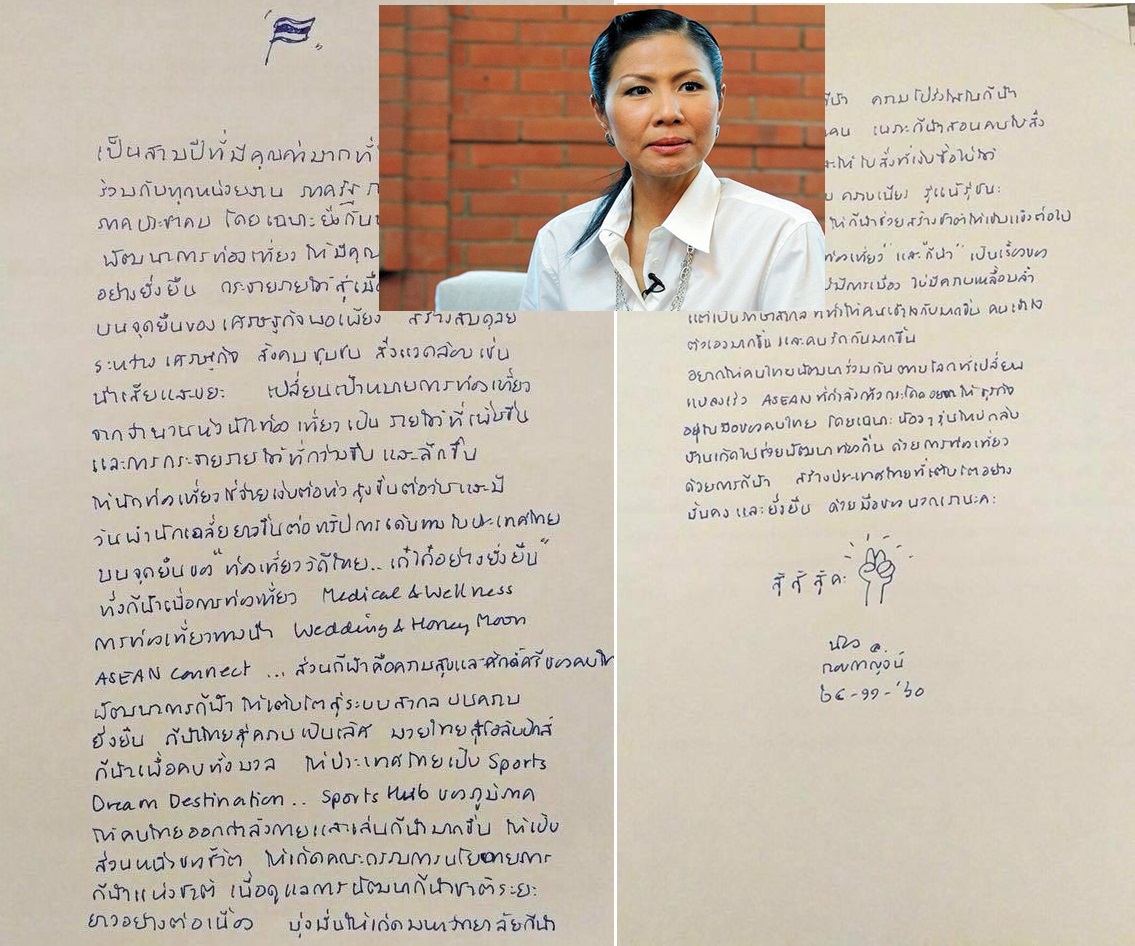 เป็นสามปีที่มีคุณค่ามากที่
ร่วมกับทุกหน่วยงาน ภาครัฐ
ภาคประชาคม โดยเฉพาะยิ่งกับ
พัฒนาการท่องเที่ยว ให้มีคุณ
อย่างยั่งยืน กระจายรายได้สู่เมือ
บนจุดยืนของ เศรษฐกิจพอเพียง สร้างสมดุลย์
ระหว่าง เศรษฐกิจ สังคม ชุมชน สิ่งแวดล้อม เช่น
น้ำเสียและขยะ เปลี่ยนเป้าหมายการท่องเที่ยว
จากจำนวนหัวนักท่องเที่ยว เป็น รายได้ที่เพิ่มขึ้น
และการกระจายรายได้ที่กว้างขึ้น และลึกขึ้น
ให้นักท่องเที่ยวใช้จ่ายเงินต่อหัว สูงขึ้นต่อวันและมี
วันพำนักเฉลี่ยยาวขึ้นต่อทริปการเดินทางในประเทศไทย
บนจุดยืนของ "ท่องเที่ยววิถีไทย.. เก๋ไก๋อย่างยั่งยืน"
ทั้งกีฬาเพื่อการท่องเที่ยว Medical & Wellness
การท่องเที่ยวทางน้ำ Wedding & Honey Moon
ASEAN connect ... ส่วนกีฬาคือความสุขและศักดิ์ศรีของคนไท
พัฒนาการกีฬา ให้เติบโตสู่ระบบสากล บนความ
ยั่งยืน กีฬาไทยสู่ความเป็นเลิศ มวยไทยสู่โอลิมปิกส์
กีฬาเพื่อคนทั้งมวล ให้ประเทศไทยเป็น Sports
Dream Destination.. Sports Hub ของภูมิภาค
ให้คนไทยออกกำลังกายและเล่นกีฬามากขึ้น ให้เป็น
ส่วนหนึ่งของชีวิต ให้เกิดคณะกรรมการนโยบายการ
กีฬาแห่งชาติ เพื่อดูแลการพัฒนากีฬาชาติระยะ
ยาวอย่างต่อเนื่อง มุ่งมั่นให้เกิดมหาวิทยาลัยกีฬา
กีฬา ความโปร่งใสในกีฬา
คน เพราะกีฬาสอนคนในสิ่ง
ให้ ในสิ่งที่เงินซื้อไม่ได้
ความเพียร รู้แพ้รู้ชนะ
ให้กีฬาช่วยสร้างชาติให้เข้มแข็งต่อไป
ท่องเที่ยว" และ "กีฬา" เป็นเรื่องของ
ไม่มีการเมือง ไม่มีความเหลื่อมล้ำ
แต่เป็นภาษาสากล ที่ทำให้คนเข้าใจกันมากขึ้น คนเข้าใจ
ตัวเองมากขึ้น และคนรักกันมากขึ้น
อยากให้คนไทยพัฒนาร่วมกัน ตามโลกที่เปลี่ยน
แปลงเร็ว ASEAN ที่กำลังก้าวกระโดด อยากให้ ธุรกิจ
อยู่ในมือของคนไทย โดยเฉพาะ น้องๆ รุ่นใหม่ กลับ
บ้านเกิดไปช่วยพัฒนาท้องถิ่น ด้วยการท่องเที่ยว
ด้วยการกีฬา สร้างประเทศไทยที่เติบโตอย่าง
มั่นคง และยั่งยืน ด้วยมือของ พวกเรานะคะ
สู้ สู้ สู้ ค่ะ
กอบกาญจน์
๒๔-๑๑-'๖๐